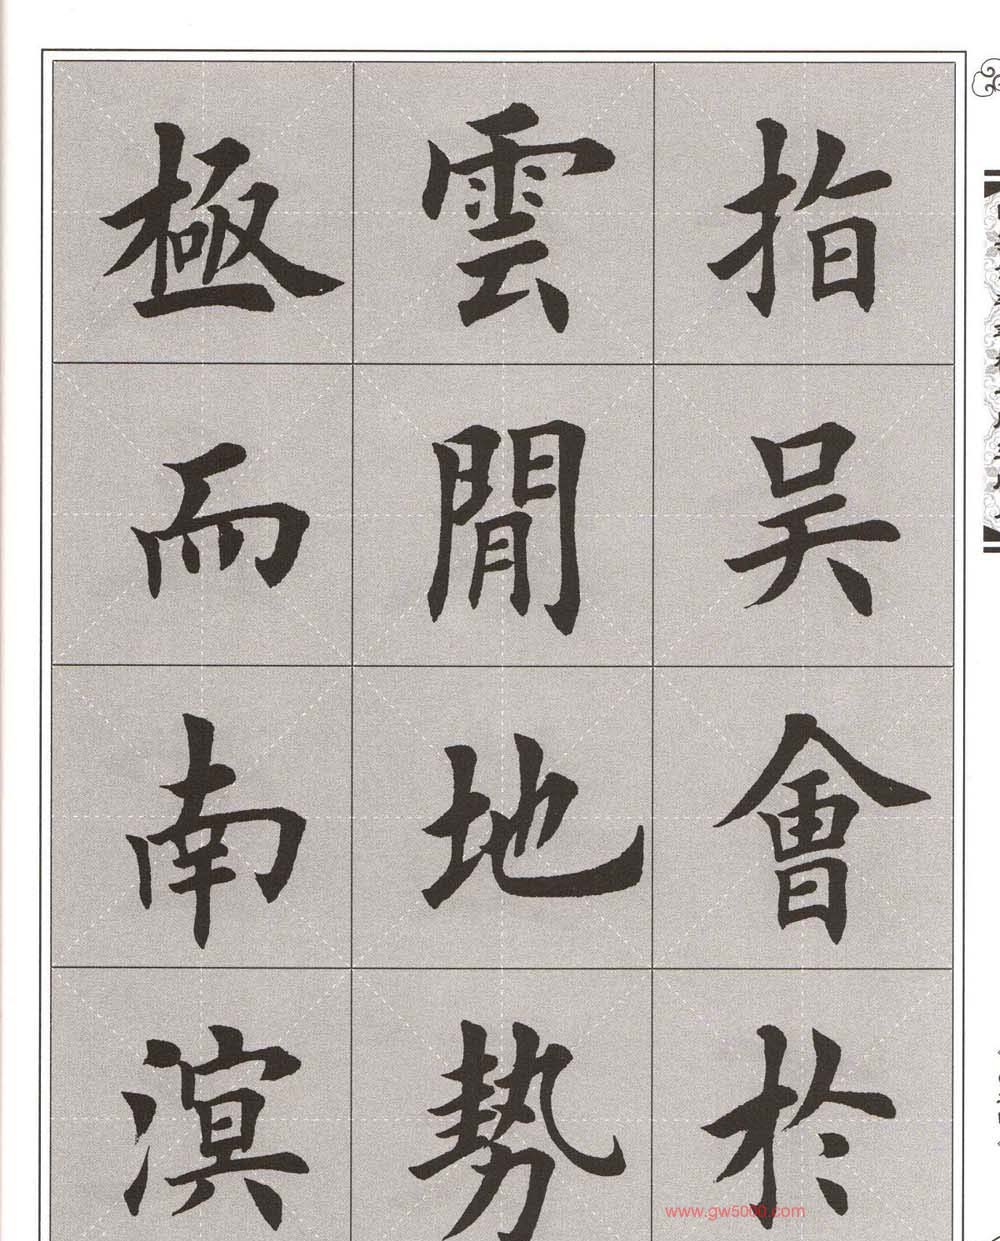 指吴會於
雲間地勢
極而南溟
www.gw5000.com